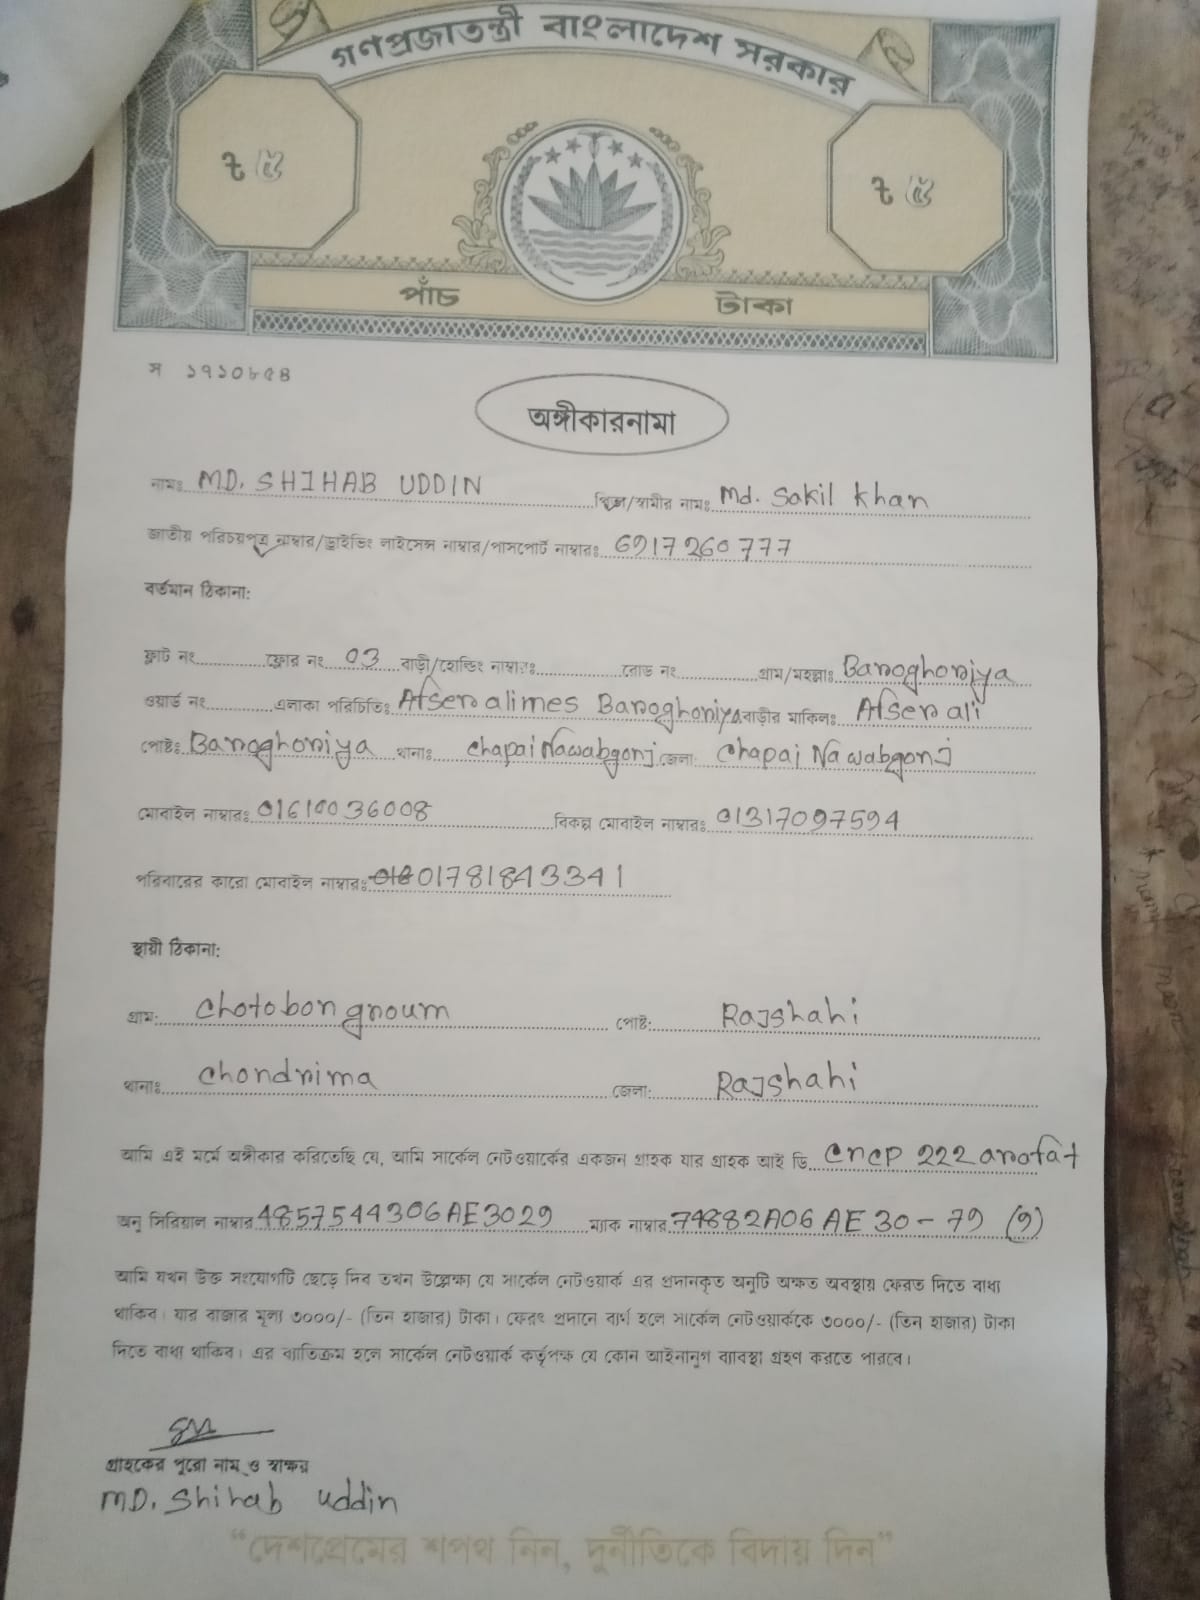 গণপ্রজাতন্ত্রী বাংলাদেশ সরকার
৳ ৫ ৳ ৫
পাঁচ টাকা
স ১৭১০৮৫৪
অঙ্গীকারনামা
নামঃ MD. SHIHAB UDDIN পিতা/স্বামীর নামঃ Md. Sakil Khan
জাতীয় পরিচয়পত্র নাম্বার/ড্রাইভিং লাইসেন্স নাম্বার/পাসপোর্ট নাম্বারঃ 6917260777
বর্তমান ঠিকানা:
ফ্লাট নং ফ্লোর নং 03 বাড়ী/হোল্ডিং নাম্বারঃ রোড নং গ্রাম/মহল্লাঃ Baroghoriya
ওয়ার্ড নং এলাকা পরিচিতিঃ Afser alimes Baroghoriya বাড়ীর মালিকঃ Afser ali
পোষ্টঃ Baroghoriya থানাঃ Chapai Nawabgonj জেলা: Chapai Nawabgonj
মোবাইল নাম্বারঃ 01610036008 বিকল্প মোবাইল নাম্বারঃ 01317097594
পরিবারের কারো মোবাইল নাম্বারঃ 01781843341
স্থায়ী ঠিকানা:
গ্রাম: Chotobongroum পোষ্ট: Rajshahi
থানাঃ Chondrima জেলা: Rajshahi
আমি এই মর্মে অঙ্গীকার করিতেছি যে, আমি সার্কেল নেটওয়ার্কের একজন গ্রাহক যার গ্রাহক আই ডি crcp 222 arafat
অনু সিরিয়াল নাম্বার 4857544306AE3029 ম্যাক নাম্বার 74882A06AE30-79 (9)
আমি যখন উক্ত সংযোগটি ছেড়ে দিব তখন উল্লেক্ষা যে সার্কেল নেটওয়ার্ক এর প্রদানকৃত অনুটি অক্ষত অবস্থায় ফেরত দিতে বাধ্য
থাকিব। যার বাজার মূল্য ৩০০০/- (তিন হাজার) টাকা। ফেরৎ প্রদানে ব্যর্থ হলে সার্কেল নেটওয়ার্ককে ৩০০০/- (তিন হাজার) টাকা
দিতে বাধ্য থাকিব। এর ব্যাতিক্রম হলে সার্কেল নেটওয়ার্ক কর্তৃপক্ষ যে কোন আইনানুগ ব্যাবস্থা গ্রহণ করতে পারবে।
গ্রাহকের পুরো নাম ও স্বাক্ষর
MD. Shihab uddin
“দেশপ্রেমের শপথ নিন, দুর্নীতিকে বিদায় দিন”